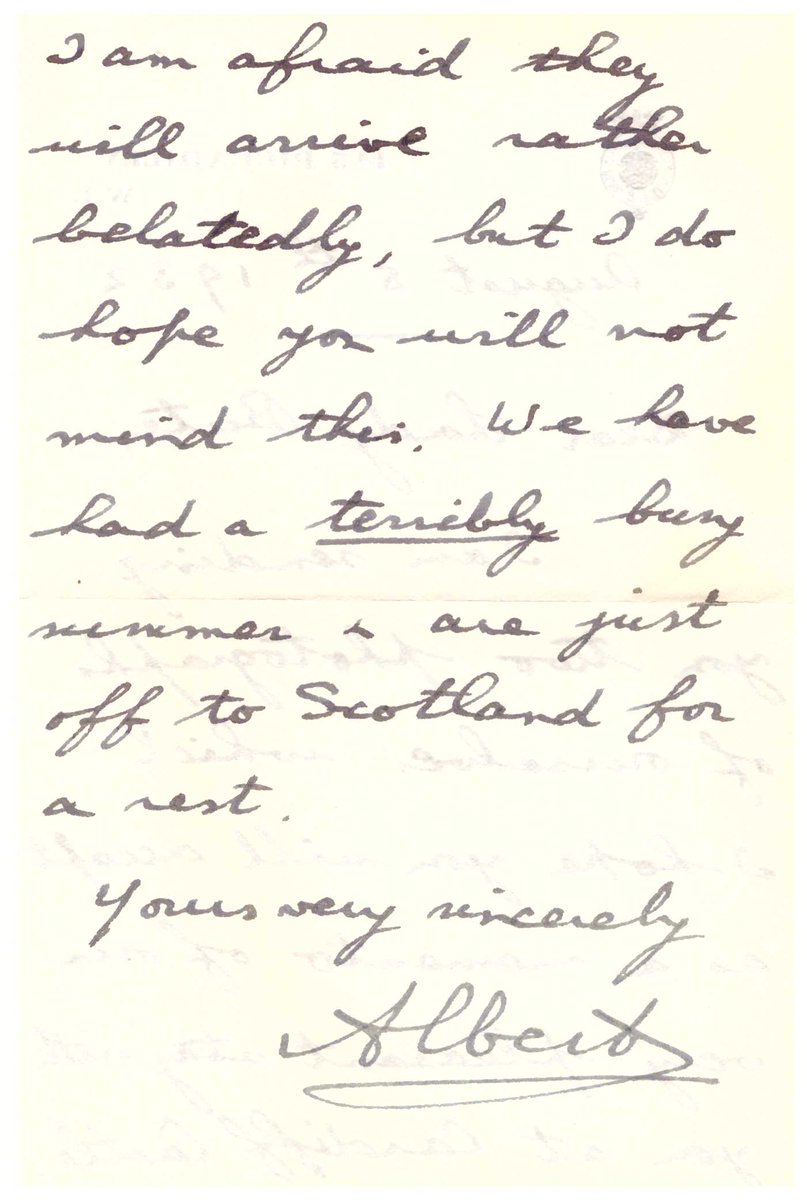 I am afraid they
will arrive rather
belatedly, but I do
hope you will not
mind this. We have
had a terribly busy
summer & are just
off to Scotland for
a rest.
Yours very sincerely
Albert